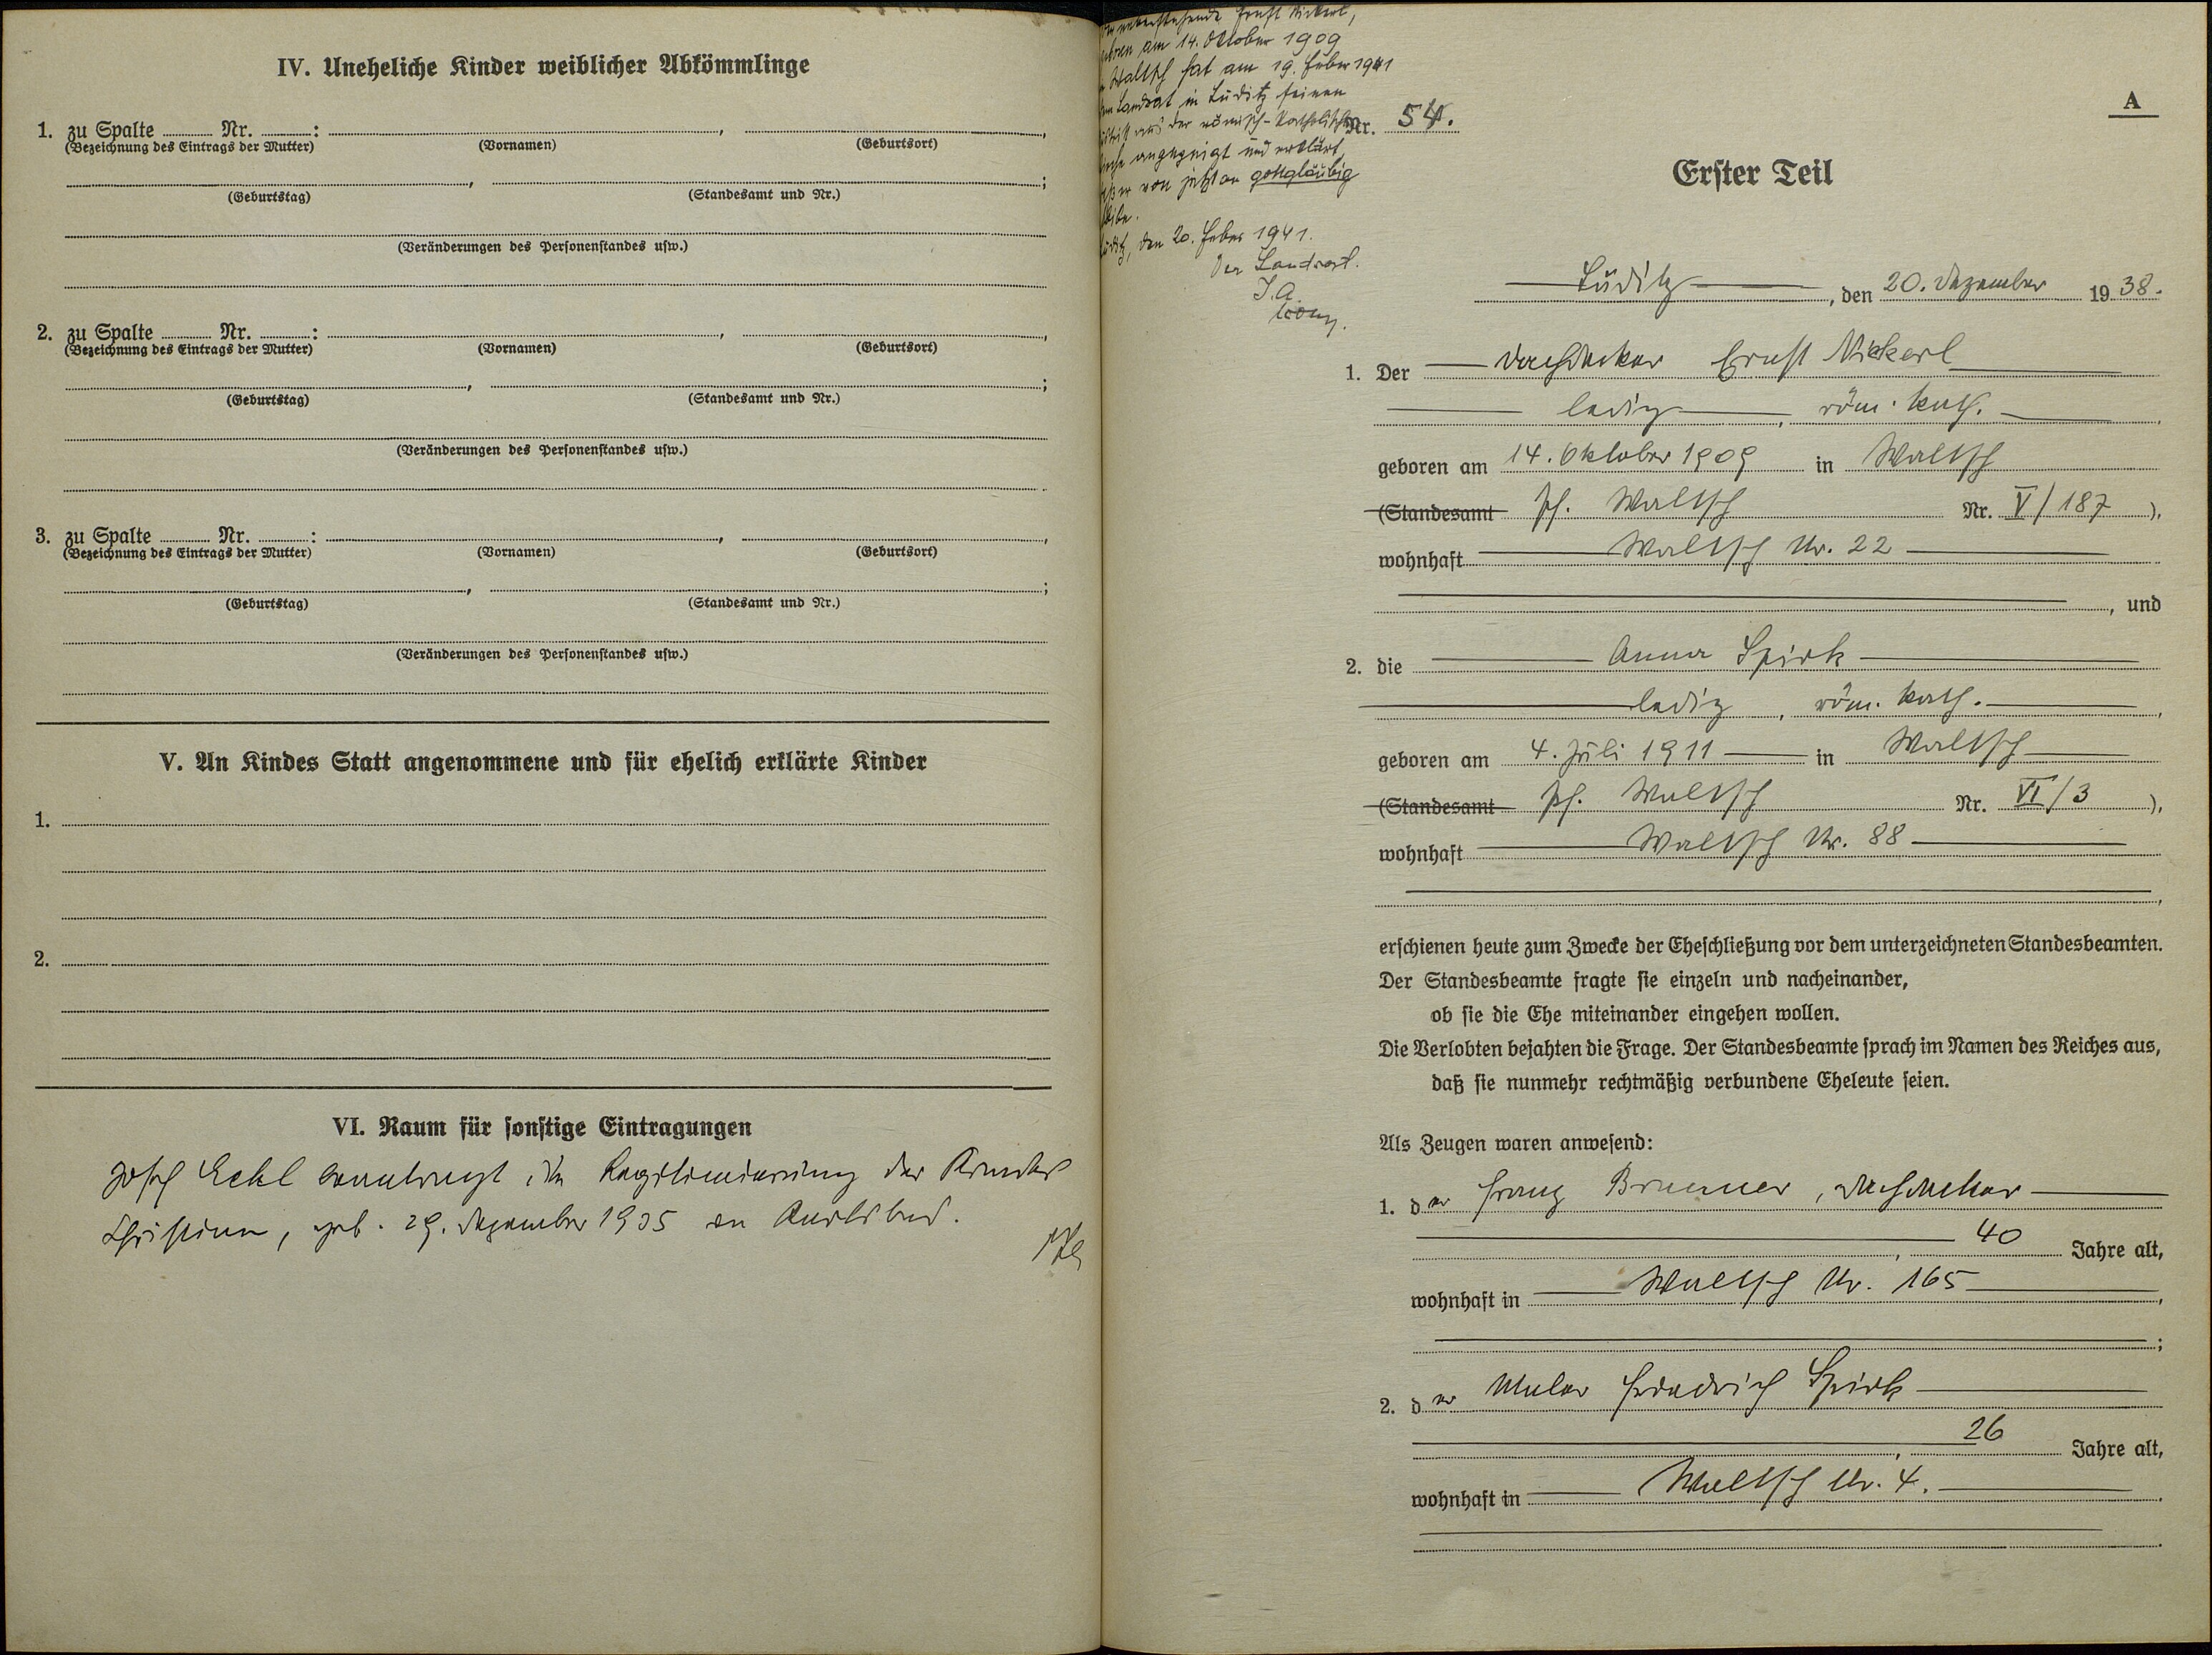 IV. Uneheliche Kinder weiblicher Abkömmlinge
1. zu Spalte ........ Nr. ........: ........, ........,
(Bezeichnung des Eintrags der Mutter) (Vornamen) (Geburtsort)
........, ........;
(Geburtstag) (Standesamt und Nr.)
(Veränderungen des Personenstandes usw.)
2. zu Spalte ........ Nr. ........: ........, ........,
(Bezeichnung des Eintrags der Mutter) (Vornamen) (Geburtsort)
........, ........;
(Geburtstag) (Standesamt und Nr.)
(Veränderungen des Personenstandes usw.)
3. zu Spalte ........ Nr. ........: ........, ........,
(Bezeichnung des Eintrags der Mutter) (Vornamen) (Geburtsort)
........, ........;
(Geburtstag) (Standesamt und Nr.)
(Veränderungen des Personenstandes usw.)
V. An Kindes Statt angenommene und für ehelich erklärte Kinder
1.
2.
VI. Raum für sonstige Eintragungen
Josef Eckl beantragt die Legitimierung der Kindes
Christine, geb. 29. Dezember 1935 in Karlsbad.
untenstehende Ernst Nickerl,
geboren am 14. Oktober 1909
in Waltsch hat am 19. Feber 1941
dem Landrat in Luditz seinen
Austritt aus der römisch-katholischen
Kirche angezeigt und erklärt,
daß er von jetzt an gottgläubig
bleibe.
Luditz, den 20. Feber 1941.
Der Landrat.
I. A.
A
Nr. 54.
Erster Teil
Luditz, den 20. Dezember 1938.
1. Der Dachdecker Ernst Nickerl
ledig, röm. kath.,
geboren am 14. Oktober 1909 in Waltsch
(Standesamt Pf. Waltsch Nr. V/187),
wohnhaft Waltsch Nr. 22
, und
2. die Anna Spirk
ledig, röm. kath.,
geboren am 4. Juli 1911 in Waltsch
(Standesamt Pf. Waltsch Nr. VI/3),
wohnhaft Waltsch Nr. 88
,
erschienen heute zum Zwecke der Eheschließung vor dem unterzeichneten Standesbeamten.
Der Standesbeamte fragte sie einzeln und nacheinander,
ob sie die Ehe miteinander eingehen wollen.
Die Verlobten bejahten die Frage. Der Standesbeamte sprach im Namen des Reiches aus,
daß sie nunmehr rechtmäßig verbundene Eheleute seien.
Als Zeugen waren anwesend:
1. der Franz Brunner, Dachdecker
, 40 Jahre alt,
wohnhaft in Waltsch Nr. 165,
;
2. der Maler Friedrich Spirk
, 26 Jahre alt,
wohnhaft in Waltsch Nr. 4.